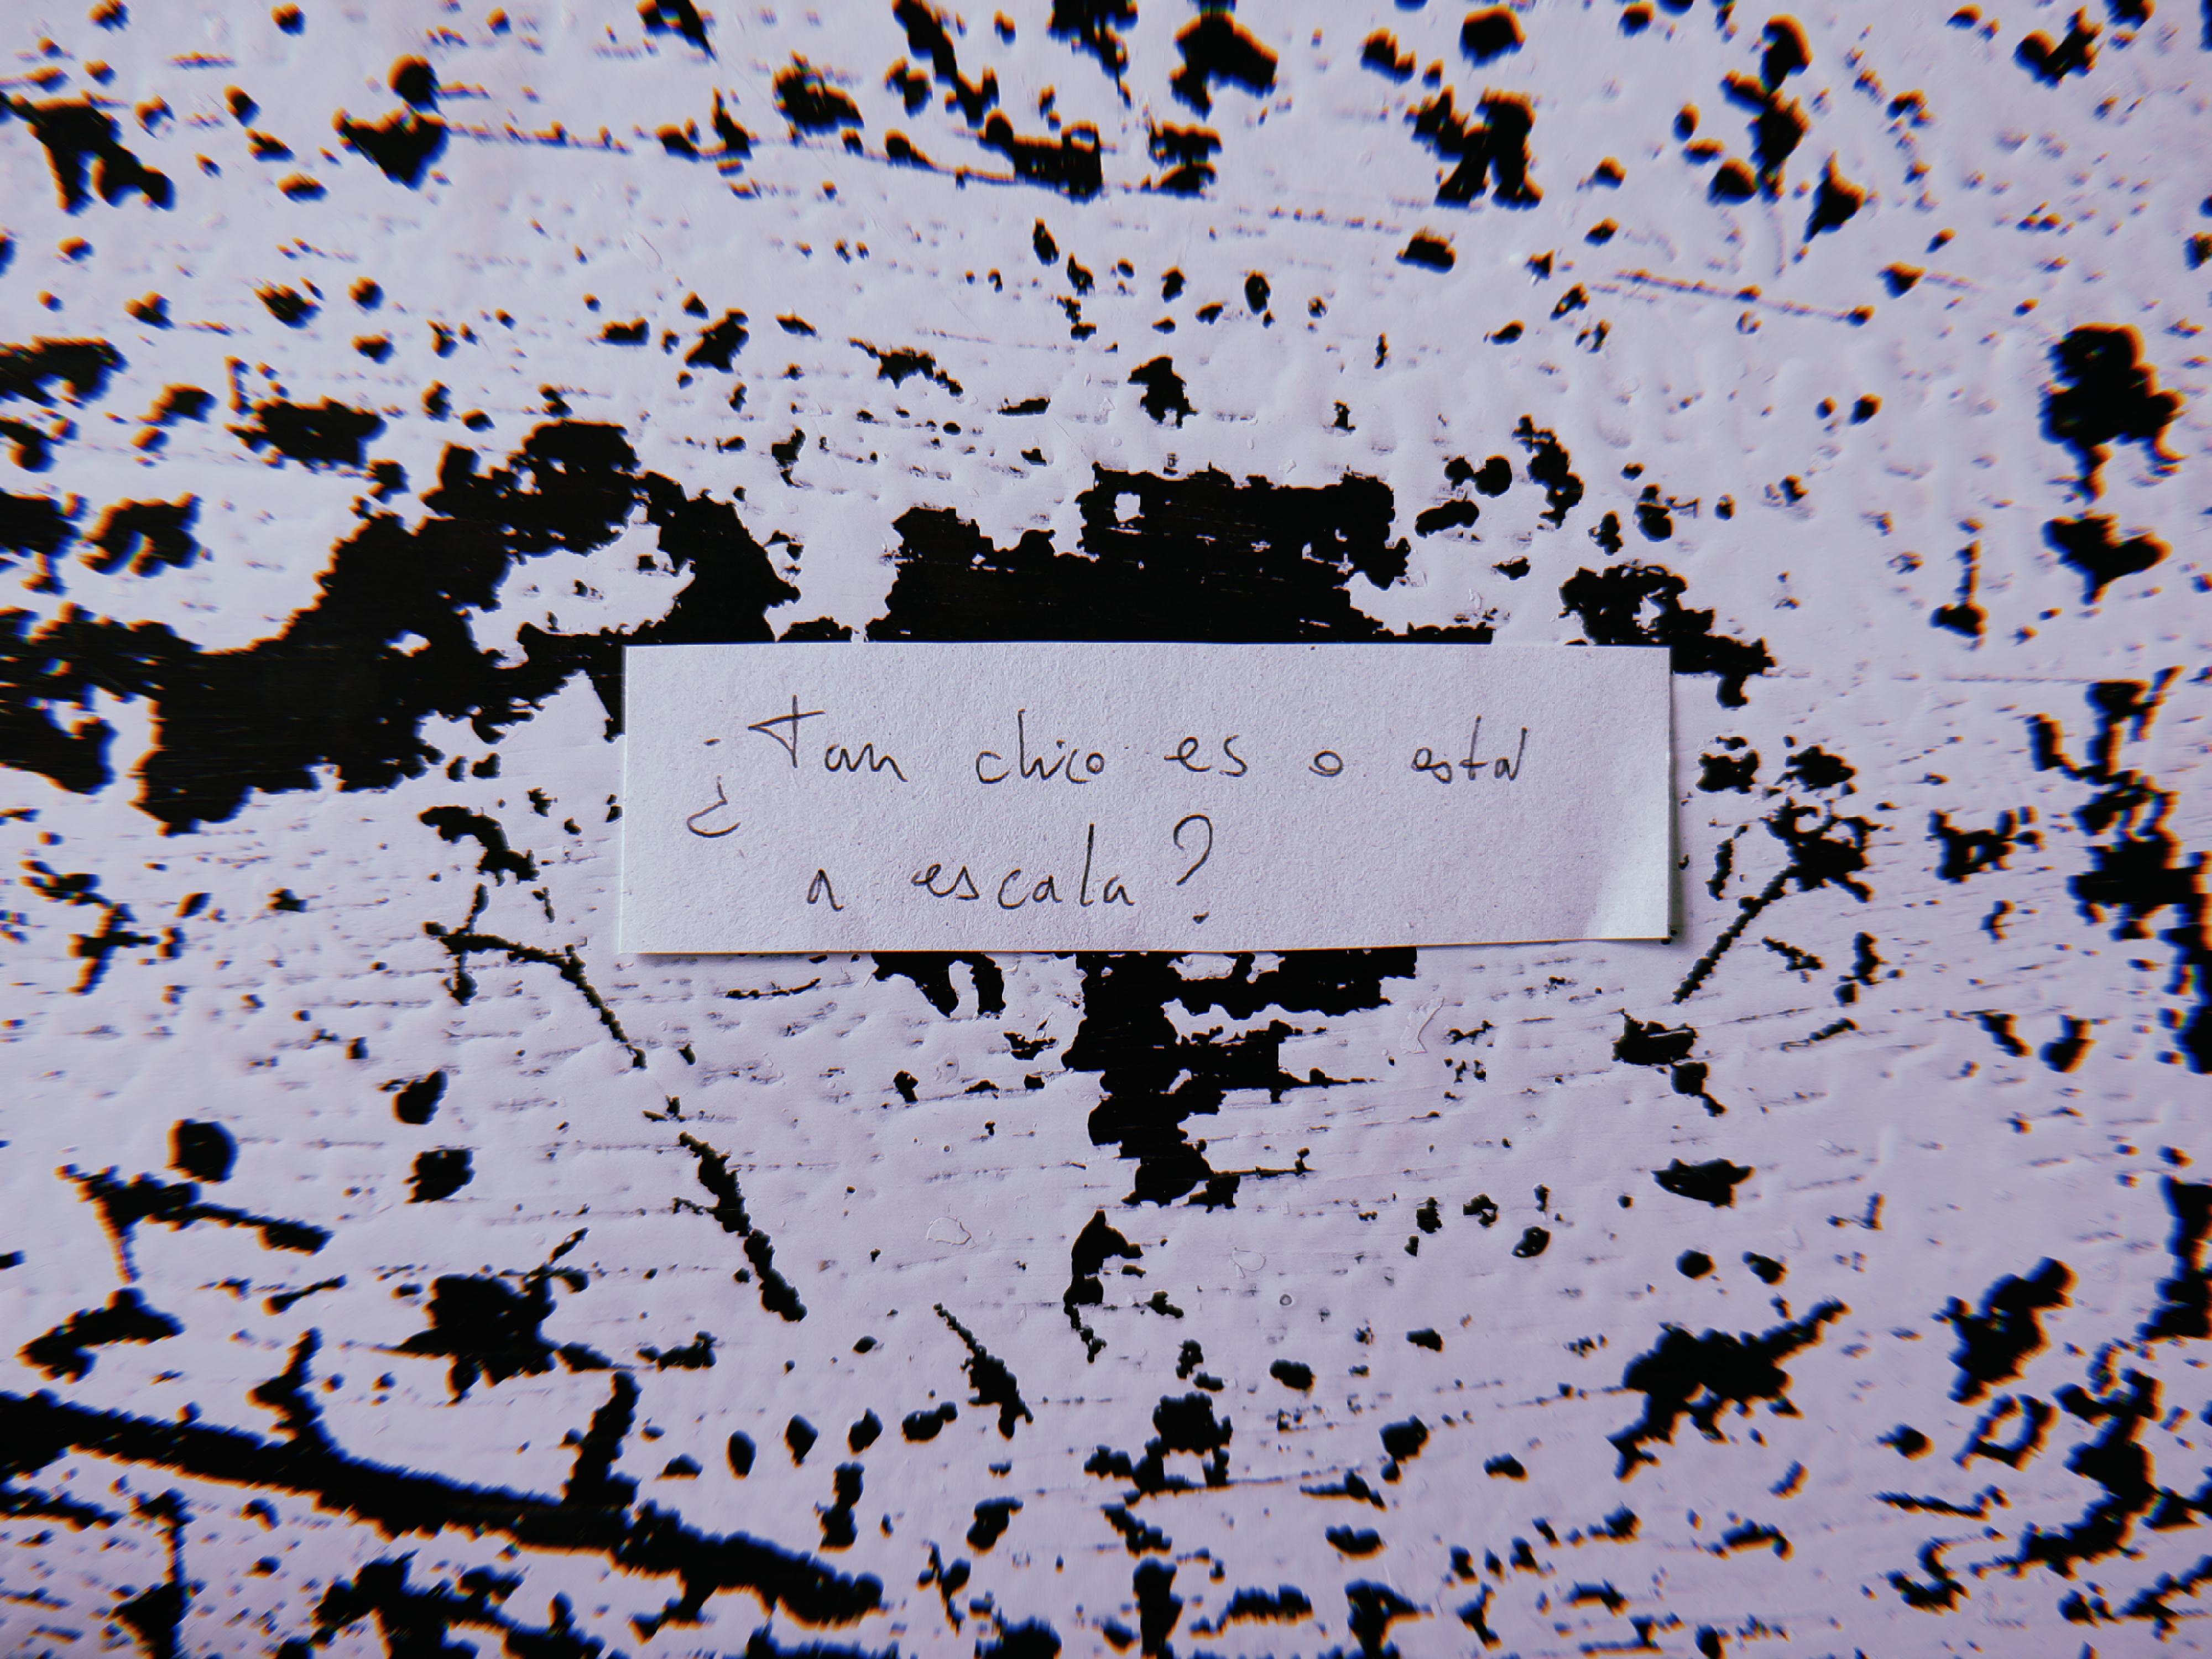 ¿Tan chico es o está
a escala?